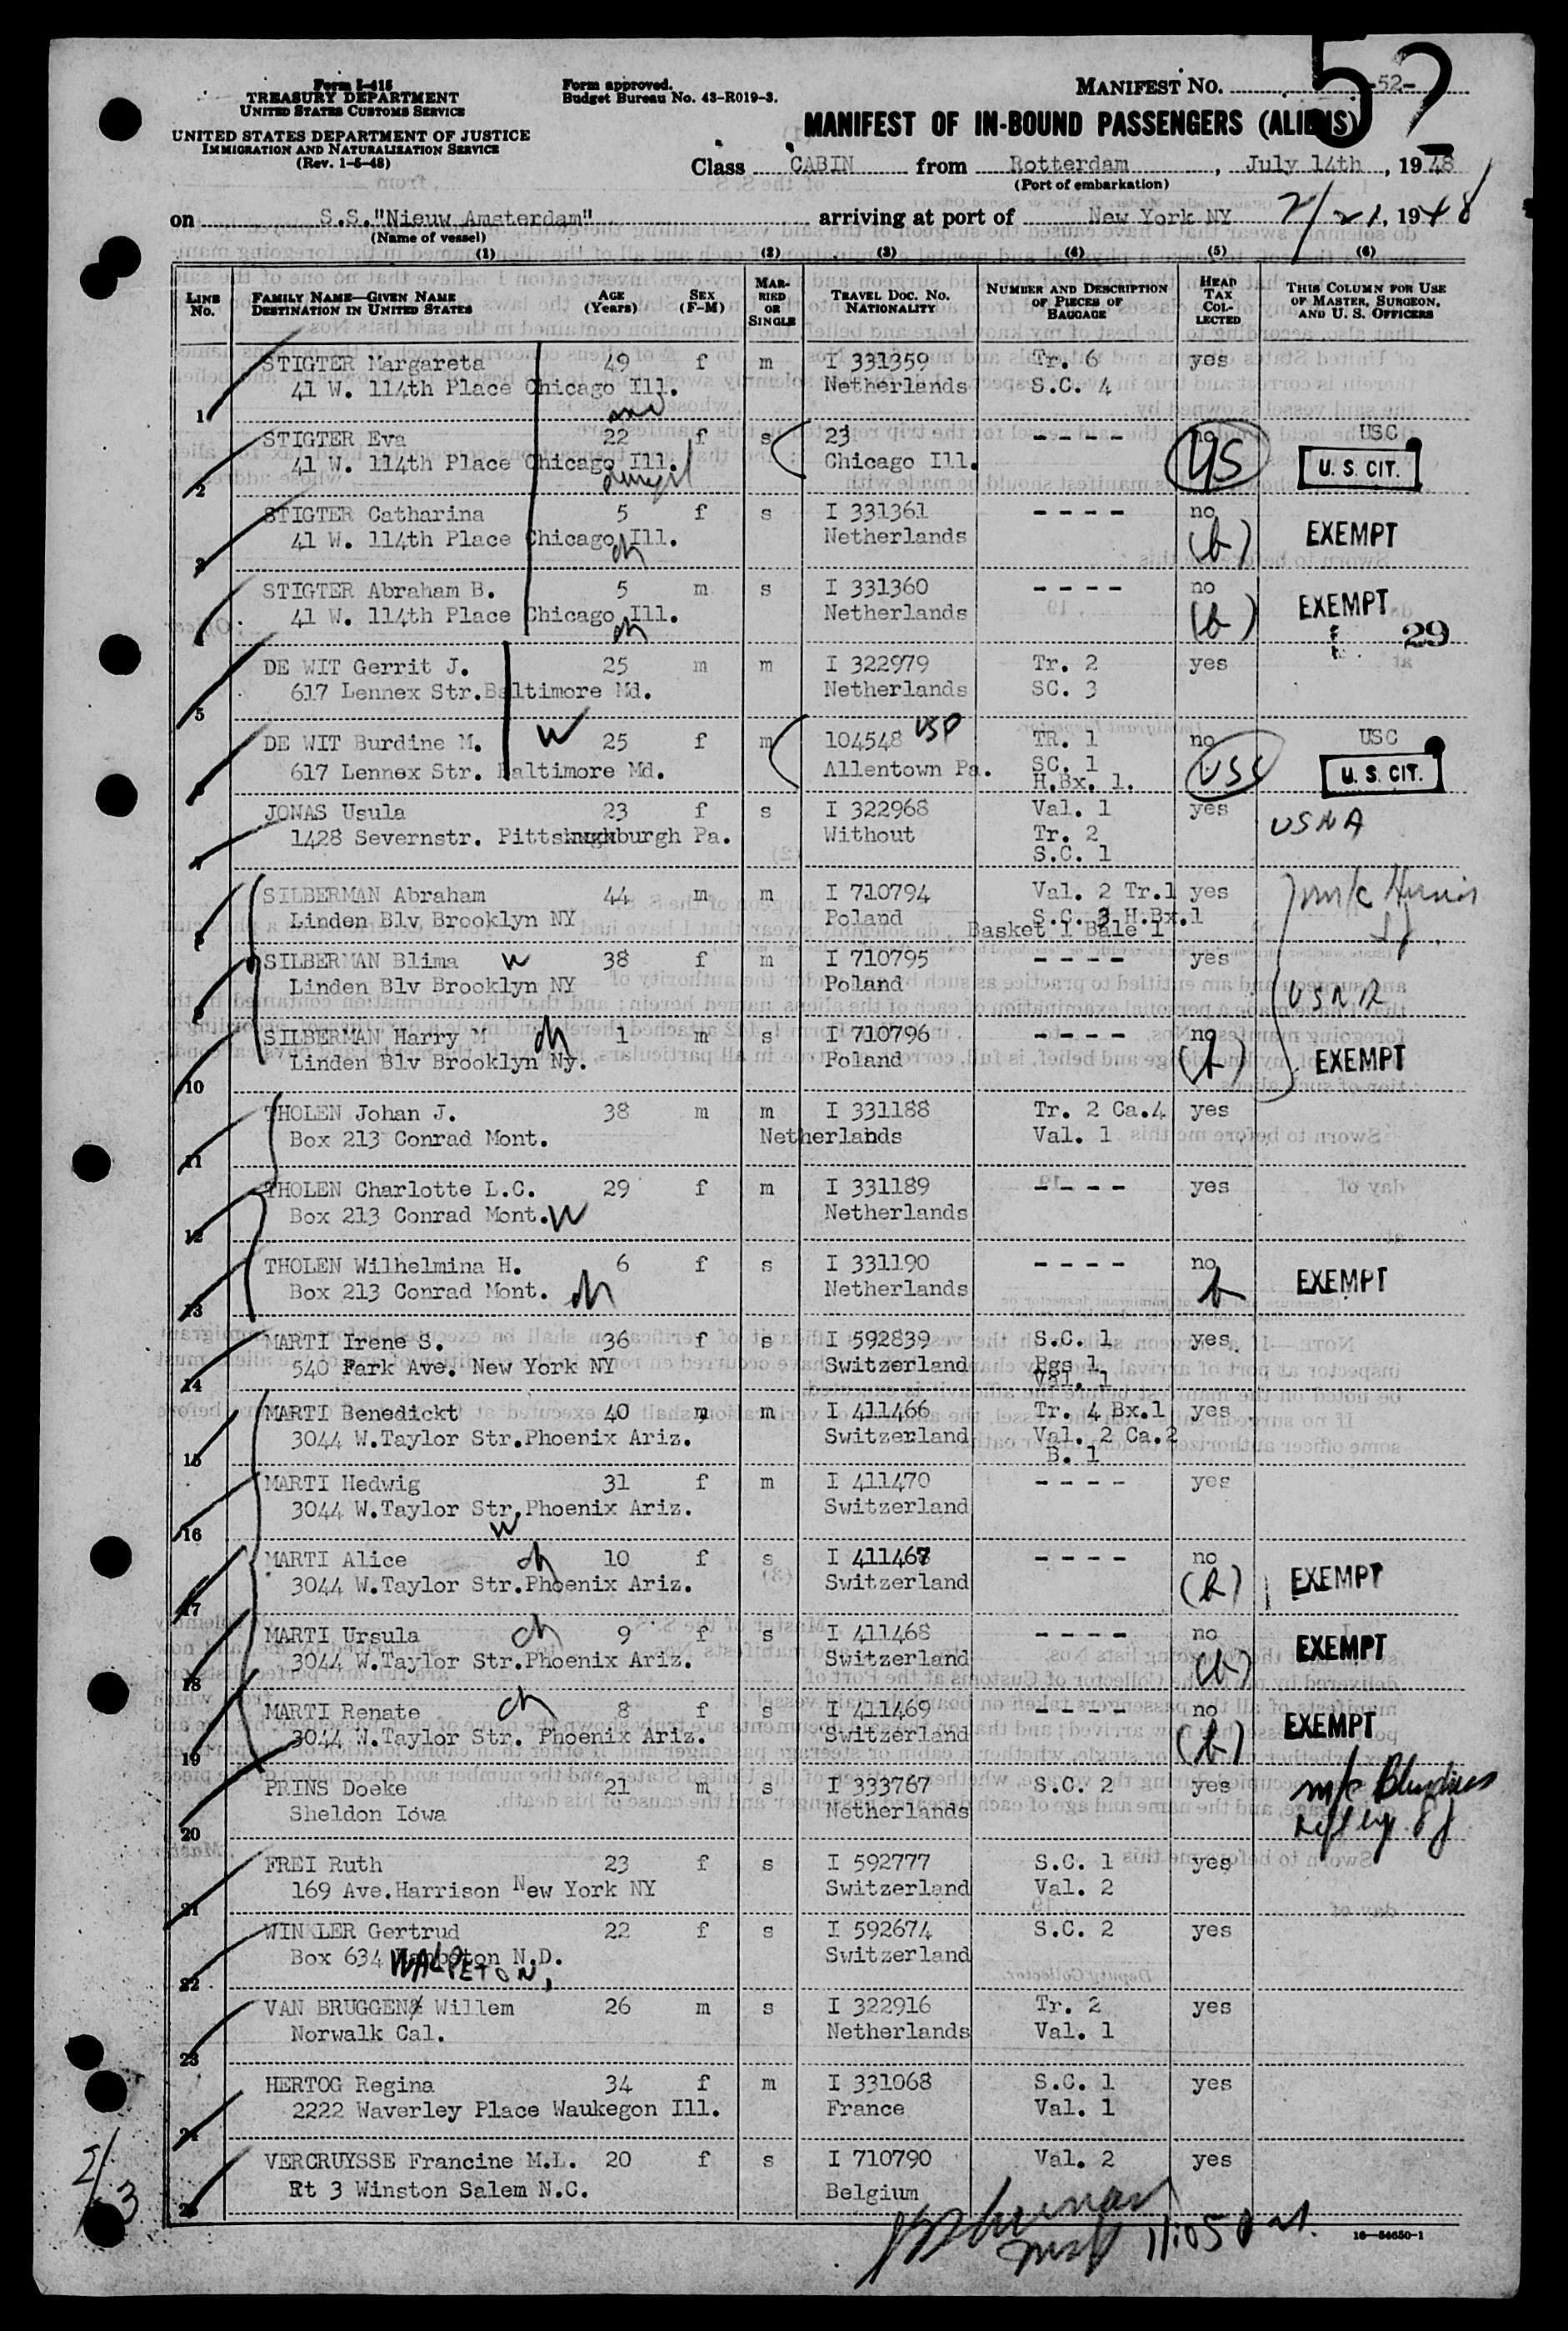 Form I-415
TREASURY DEPARTMENT
UNITED STATES CUSTOMS SERVICE
UNITED STATES DEPARTMENT OF JUSTICE
IMMIGRATION AND NATURALIZATION SERVICE
(Rev. 1-5-48)
Form approved.
Budget Bureau No. 43-R019-3.
MANIFEST NO. -52-
52
MANIFEST OF IN-BOUND PASSENGERS (ALIENS)
Class CABIN from Rotterdam, July 14th, 1948
(Port of embarkation)
on S.S."Nieuw Amsterdam" arriving at port of New York NY 7/21, 1948
(Name of vessel)
(1) (2) (3) (4) (5) (6)
LINE No. FAMILY NAME—GIVEN NAME DESTINATION IN UNITED STATES AGE (Years) SEX (F-M) MARRIED OR SINGLE TRAVEL DOC. NO. NATIONALITY NUMBER AND DESCRIPTION OF PIECES OF BAGGAGE HEAD TAX COLLECTED THIS COLUMN FOR USE OF MASTER, SURGEON, AND U. S. OFFICERS
STIGTER Margareta 49 f m I 331359 Tr. 6 yes
1 41 W. 114th Place Chicago Ill. Netherlands S.C. 4
STIGTER Eva 22 f s 23 - - - - no USC
2 41 W. 114th Place Chicago Ill. Chicago Ill. US U. S. CIT.
STIGTER Catharina 5 f s I 331361 - - - - no
3 41 W. 114th Place Chicago Ill. ch Netherlands (b) EXEMPT
STIGTER Abraham B. 5 m s I 331360 - - - - no
41 W. 114th Place Chicago Ill. ch Netherlands (b) EXEMPT
29
DE WIT Gerrit J. 25 m m I 322979 Tr. 2 yes
5 617 Lennex Str.Baltimore Md. Netherlands SC. 3
DE WIT Burdine M. W 25 f m 104548 USP TR. 1 no USC
617 Lennex Str. Baltimore Md. Allentown Pa. SC. 1 USC U. S. CIT.
H.Bx. 1.
JONAS Usula 23 f s I 322968 Val. 1 yes USNA
1428 Severnstr. Pittsburgh Pa. Without Tr. 2
S.C. 1
SILBERMAN Abraham 44 m m I 710794 Val. 2 Tr.1 yes
Linden Blv Brooklyn NY Poland S.C. 3 H.Bx.1
Basket 1 Bale 1
SILBERMAN Blima W 38 f m I 710795 - - - - yes
Linden Blv Brooklyn NY Poland USNA
SILBERMAN Harry M ch 1 m s I 710796 - - - - no
10 Linden Blv Brooklyn Ny. Poland (b) EXEMPT
THOLEN Johan J. 38 m m I 331188 Tr. 2 Ca.4 yes
11 Box 213 Conrad Mont. Netherlands Val. 1
THOLEN Charlotte L.C. 29 f m I 331189 - - - - yes
12 Box 213 Conrad Mont. W Netherlands
THOLEN Wilhelmina H. 6 f s I 331190 - - - - no
13 Box 213 Conrad Mont. ch Netherlands b EXEMPT
MARTI Irene S. 36 f s I 592839 S.C. 1 yes
14 540 Park Ave. New York NY Switzerland Pgs 1
Val. 1
MARTI Benedickt 40 m m I 411466 Tr. 4 Bx.1 yes
15 3044 W.Taylor Str.Phoenix Ariz. Switzerland Val. 2 Ca.2
B. 1
MARTI Hedwig 31 f m I 411470 - - - - yes
16 3044 W.Taylor Str.Phoenix Ariz. W Switzerland
MARTI Alice ch 10 f s I 411467 - - - - no
17 3044 W.Taylor Str.Phoenix Ariz. Switzerland (b) EXEMPT
MARTI Ursula ch 9 f s I 411468 - - - - no
18 3044 W.Taylor Str.Phoenix Ariz. Switzerland (b) EXEMPT
MARTI Renate ch 8 f s I 411469 - - - - no
19 3044 W.Taylor Str. Phoenix Ariz. Switzerland (b) EXEMPT
PRINS Doeke 21 m s I 333767 S.C. 2 yes m/c
20 Sheldon Iowa Netherlands
FREI Ruth 23 f s I 592777 S.C. 1 yes
21 169 Ave.Harrison New York NY Switzerland Val. 2
WINKLER Gertrud 22 f s I 592674 S.C. 2 yes
22 Box 634 WAHPETON, N.D. Switzerland
VAN BRUGGEN Willem 26 m s I 322916 Tr. 2 yes
23 Norwalk Cal. Netherlands Val. 1
HERTOG Regina 34 f m I 331068 S.C. 1 yes
24 2222 Waverley Place Waukegon Ill. France Val. 1
VERCRUYSSE Francine M.L. 20 f s I 710790 Val. 2 yes
Rt 3 Winston Salem N.C. Belgium
11:05
16—54650-1